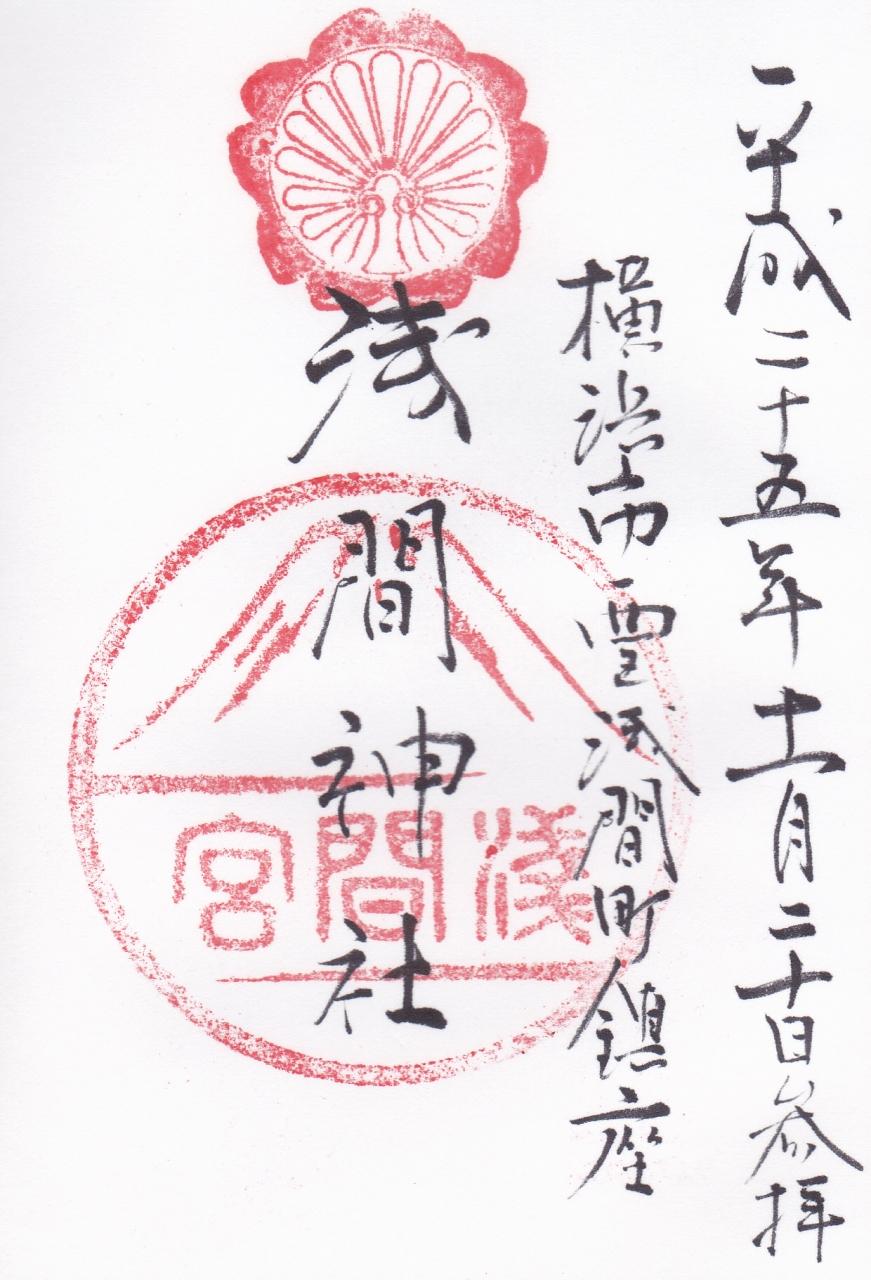 平成二十五年十一月二十日参拝
横浜市西区浅間町鎮座
浅間神社
淺間宮